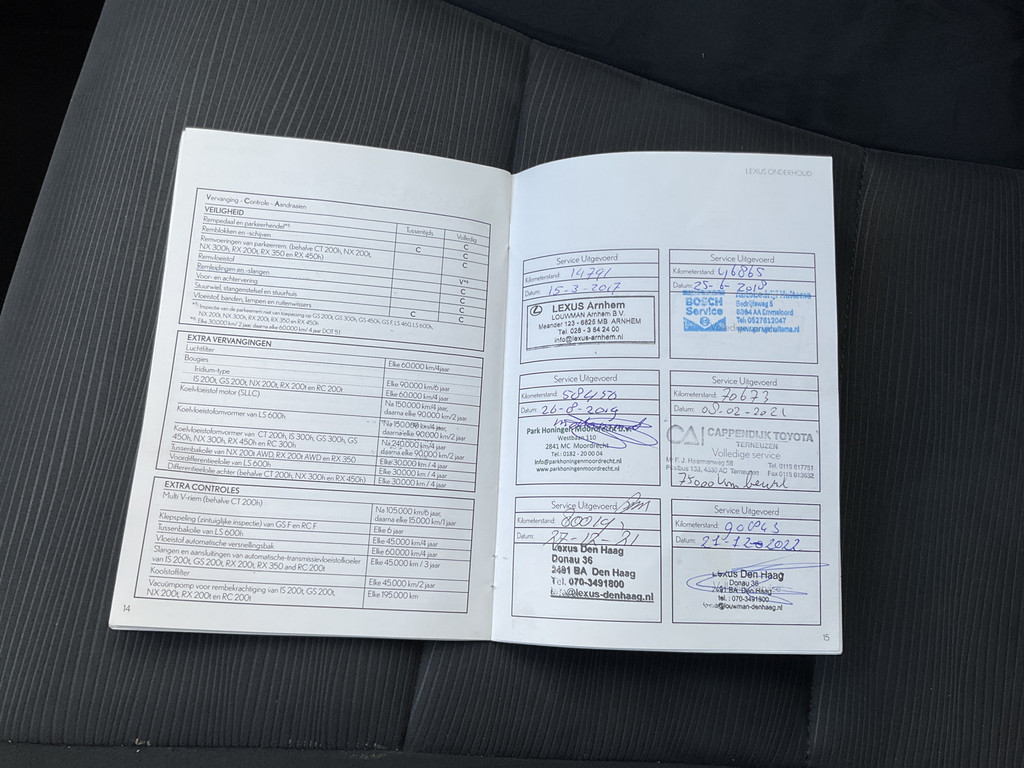 Vervanging - Controle - Aandraaien
VEILIGHEID
Tussentijds
Volledig
Rempedaal en parkeerhendel*⁵
C
Remblokken en -schijven
C
C
Remvoeringen van parkeerrem. (behalve CT 200h, NX 200t,
NX 300h, RX 200t, RX 350 en RX 450h)
C
Remvloeistof
Remleidingen en -slangen
V*⁶
Voor- en achtervering
C
Stuurwiel, stangenstelsel en stuurhuis
C
Vloeistof, banden, lampen en ruitenwissers
C
C
*⁵: Inspectie van de parkeerrem niet van toepassing op GS 200t, GS 300h, GS 450h, GS F, LS 460, LS 600h,
NX 200t, NX 300h, RX 200t, RX 350 en RX 450h
*⁶: Elke 30.000 km/ 2 jaar, daarna elke 60.000 km/ 4 jaar DOT 5.1
EXTRA VERVANGINGEN
Luchtfilter
Elke 60.000 km/4 jaar
Bougies
Iridium-type
Elke 90.000 km/6 jaar
IS 200t, GS 200t, NX 200t, RX 200t en RC 200t
Elke 60.000 km/4 jaar
Koelvloeistof motor (SLLC)
Na 150.000 km/4 jaar,
daarna elke 90.000 km/2 jaar
Koelvloeistofomvormer van LS 600h
Na 150.000 km/4 jaar,
daarna elke 90.000 km/2 jaar
Koelvloeistofomvormer van CT 200h, IS 300h, GS 300h, GS
450h, NX 300h, RX 450h en RC 300h
Na 240.000 km/4 jaar,
daarna elke 90.000 km/2 jaar
Tussenbakolie van NX 200t AWD, RX 200t AWD en RX 350
Elke 30.000 km / 4 jaar
Voordifferentieelolie van LS 600h
Elke 30.000 km / 4 jaar
Differentieelolie achter (behalve CT 200h, NX 300h en RX 450h)
Elke 30.000 km / 4 jaar
EXTRA CONTROLES
Multi V-riem (behalve CT 200h)
Na 105.000 km/6 jaar,
daarna elke 15.000 km/1 jaar
Klepspeling (zintuiglijke inspectie) van GS F en RC F
Elke 6 jaar
Tussenbakolie van LS 600h
Elke 45.000 km/4 jaar
Vloeistof automatische versnellingsbak
Elke 60.000 km/4 jaar
Slangen en aansluitingen van automatische-transmissievloeistofkoeler
van IS 200t, GS 200t, RX 200t, RX 350 and RC 200t
Elke 45.000 km/ 3 jaar
Koolstoffilter
Elke 45.000 km/2 jaar
Vacuümpomp voor rembekrachtiging van IS 200t, GS 200t,
NX 200t, RX 200t en RC 200t
Elke 195.000 km
14
LEXUS ONDERHOUD
Service Uitgevoerd
Kilometerstand: 14791
Datum: 15-3-2017
LEXUS Arnhem
LOUWMAN Arnhem B.V.
Meander 123 - 6825 MB ARNHEM
Tel. 026 - 3 84 24 00
info@lexus-arnhem.nl
Service Uitgevoerd
Kilometerstand: 46865
Datum: 25-6-2018
BOSCH
Service
Bedrijfsweg 5
8304 AA Emmeloord
Tel: 0527612047
Service Uitgevoerd
Kilometerstand: 58450
Datum: 26-8-2019
Park Honingen Moordrecht B.V.
Westbaan 110
2841 MC Moordrecht
Tel.: 0182 - 20 00 04
info@parkhoningenmoordrecht.nl
www.parkhoningenmoordrecht.nl
Service Uitgevoerd
Kilometerstand: 70673
Datum: 08-02-2021
CAPPENDIJK TOYOTA
TERNEUZEN
Volledige service
Mr F. J. Haarmanweg 58
Postbus 133, 4530 AC Terneuzen
Tel. 0115 617751
Fax 0115 613632
75000 km beurt
Service Uitgevoerd
Kilometerstand: 80019
Datum: 27-12-21
Lexus Den Haag
Donau 36
2491 BA Den Haag
Tel. 070-3491800
info@lexus-denhaag.nl
Service Uitgevoerd
Kilometerstand: 90043
Datum: 21-12-2022
Lexus Den Haag
Donau 36
2491 BA Den Haag
tel.: 070-3491800
@louwman-denhaag.nl
15